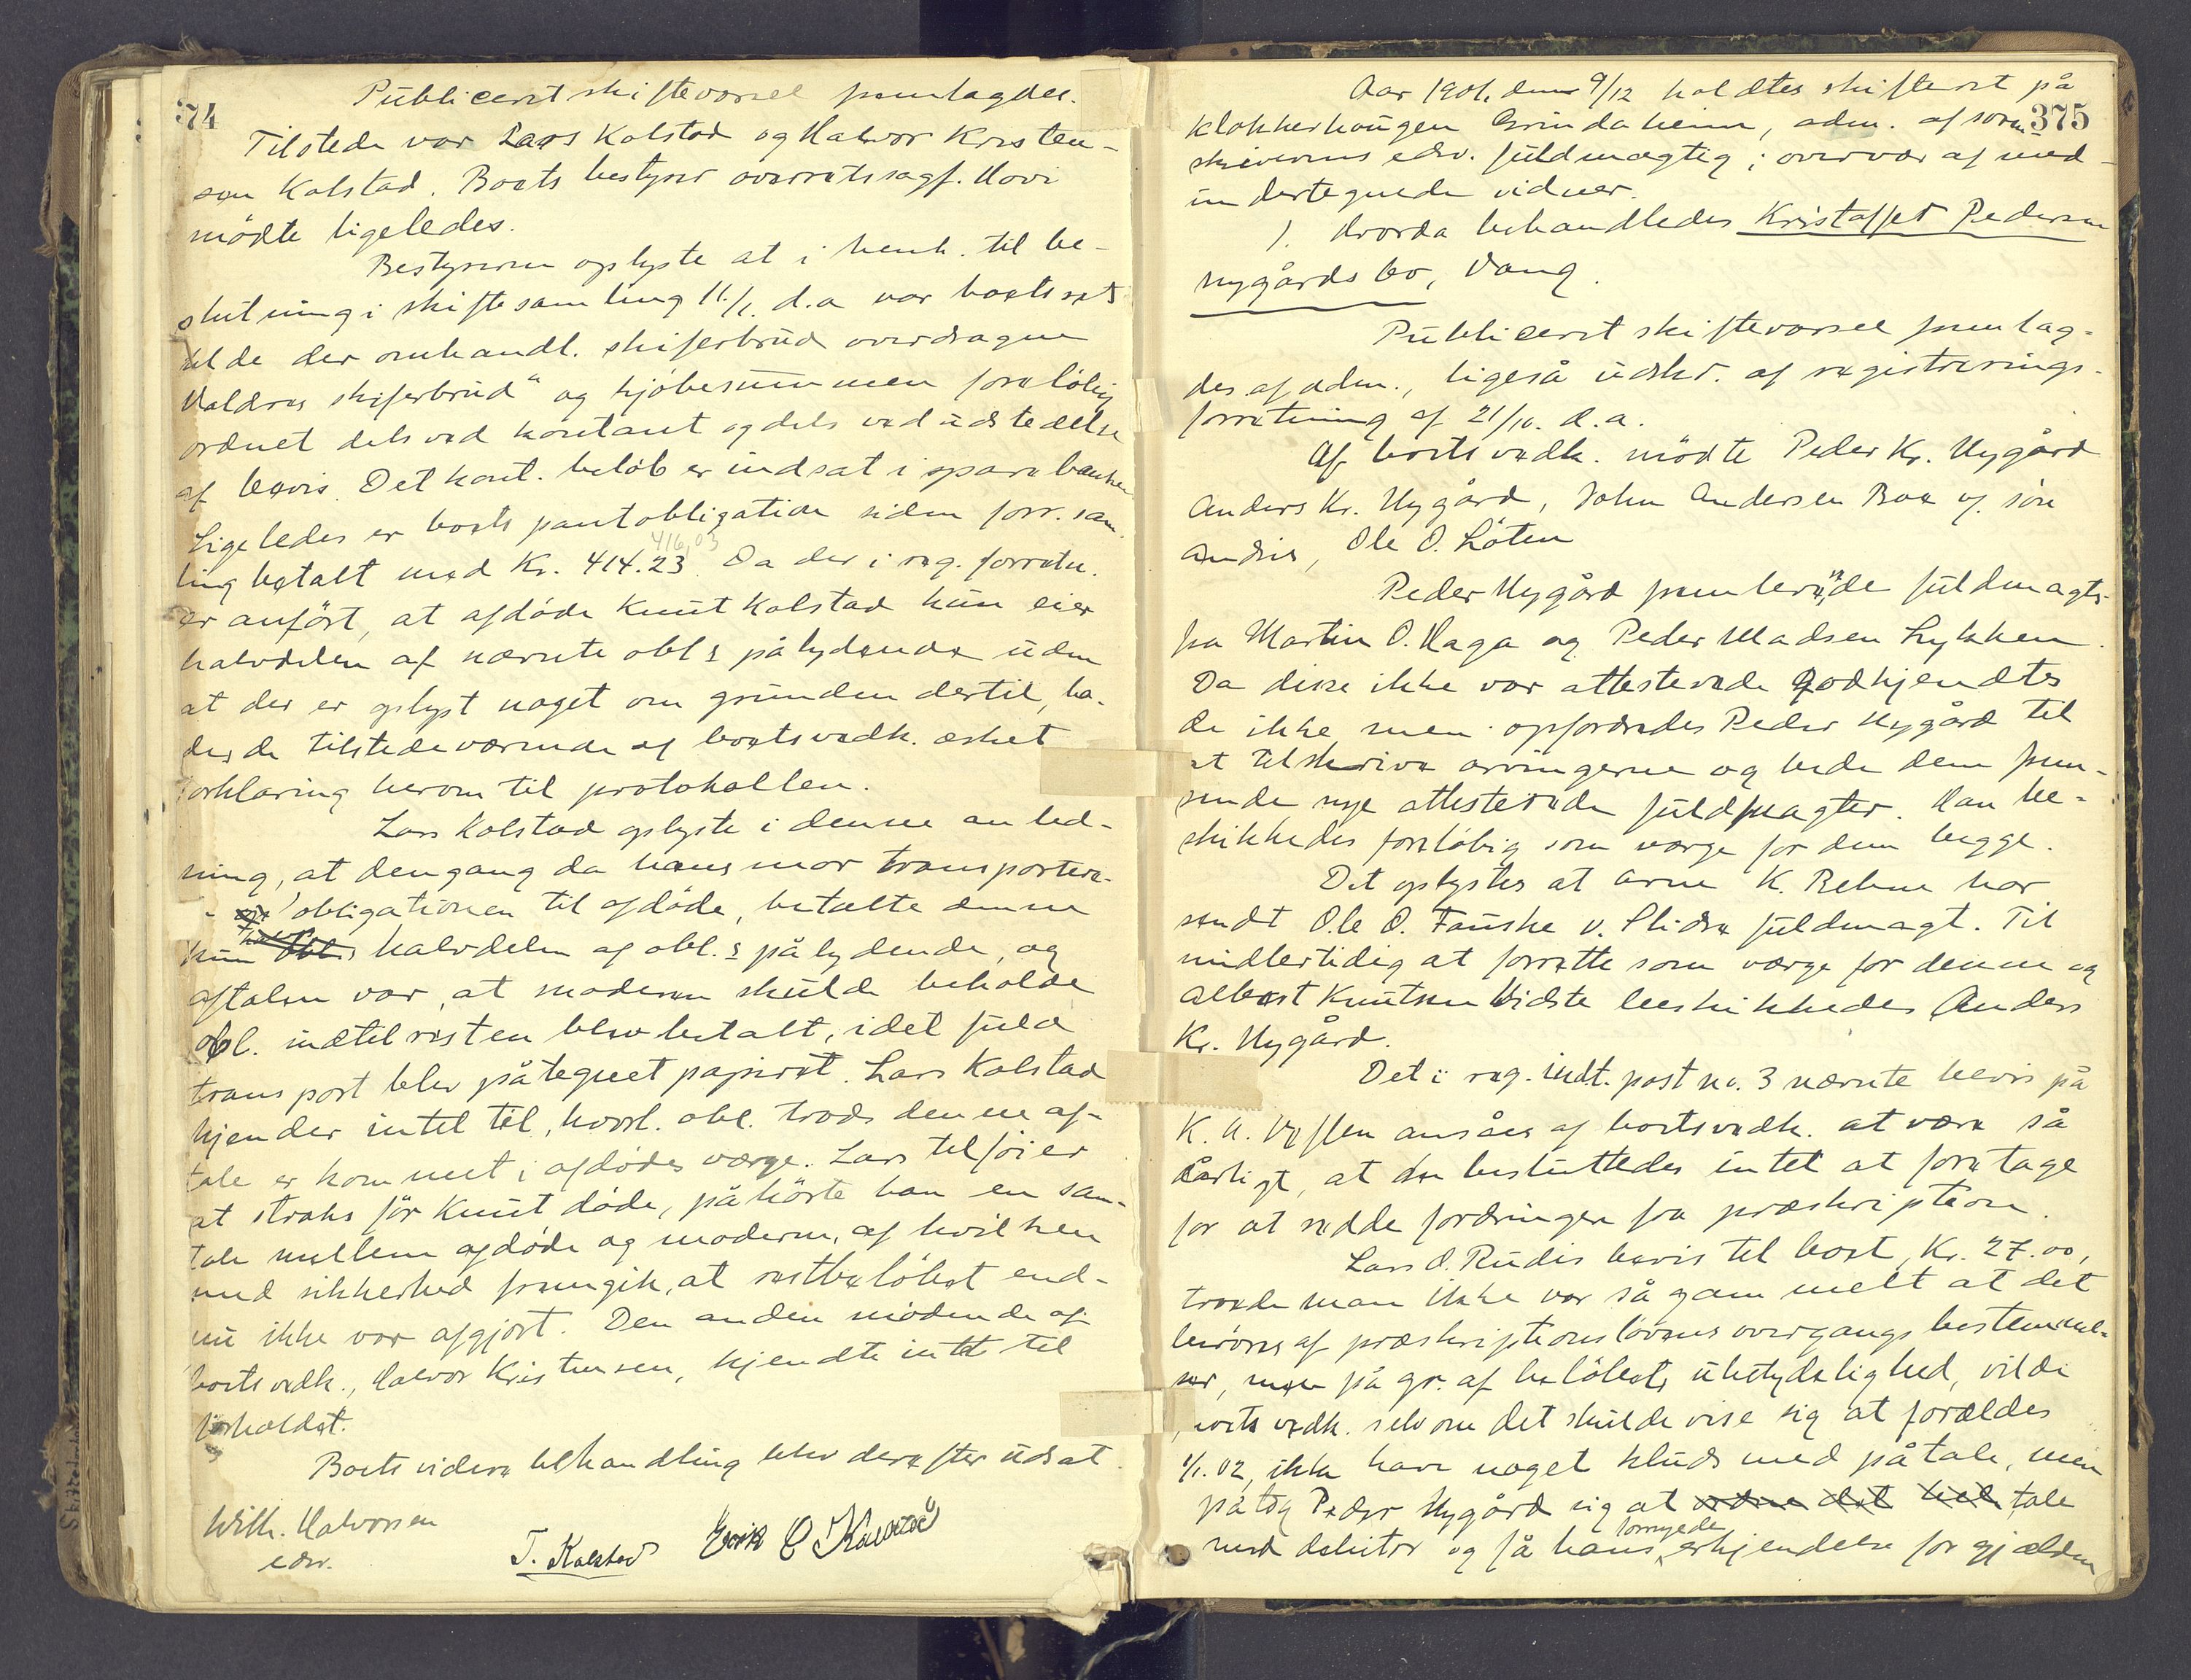 374
Publiceret skiftevarsel fremlagdes.
Tilstede var Lars Kolstad og Halvor Kristen-
sen Kolstad. Boets bestyrer overretssagf. Hovi
mödte ligeledes.
Bestyreren oplyste at i henh. til be-
slutning i skiftesamling 11/1. d.a var boets ret
til de der omhandl. skiferbrud overdragne
Valdres skiferbrud" og kjöbesummen forelöbig
ordnet dels ved kontant og dels ved udstedelse
af bevis. Det kont. belöb er indsat i sparebanken
Ligeledes er boets pantobligation siden forr. sam-
ling betalt med Kr. 414.23. Da der i reg. forretn.
416,03
er anfört, at afdöde Knut Kolstad kun eier
halvdelen af nævnte obl s pålydende uden
at der er oplyst noget om grunden dertil, ha-
des de tilstedeværende af boetsvedk. æsket
forklaring herom til protokollen.
Lars Kolstad oplyste i denne anled-
ning, at dengang da hans mor transportere-
obligationen til afdöde, betalte denne
kun halvdelen af obl. s pålydende, og
aftalen var, at moderen skulde beholde
obl. indtil resten blev betalt, idet fuld
transport blev påtegnet papiret. Lars Kolstad
kjender intet til, hvorl. obl. trods denne af-
tale er kommet i afdödes værge. Lars tilföier
at straks för Knut döde, påhörte han en sam-
tale mellem afdöde og moderen, af hvilken
med sikkerhed fremgik, at restbelöbet end-
nu ikke var afgjort. Den anden mödende af
boets vedk., Halvor Kristensen, kjendte intet til
forholdet.
Boets videre behandling blev derefter udsat.
Wilh. Halvorsen
edsv.
T. Kolstad Erik O Kolstad
375
Aar 1901, den 9/12 holdtes skifteret på
Klokkerhougen Grindaheim, adm. af soren-
skriverens edsv. fuldmægtig; overvær af med-
undertegnede vidner.
1. Hvorda behandledes Kristoffer Pedersen
Nygårds bo, Vang.
Publiceret skiftevarsel fremlag-
des af adm., ligeså udskr. af registrerings-
forretning af 21/10. d.a.
Af boets vedk. mödte Peder Kr. Nygård
Anders Kr. Nygård, John Andersen Boe og sön
Andris, Ole O. Löten
Peder Nygård fremlevende fuldmagts-
fra Martin O. Haga og Peder Madsen Lykken.
Da disse ikke var attesterede godkjendtes
de ikke men opfordredes Peder Nygård til
at tilskrive arvingerne og bede dem frem-
sende nye attesterede fuldmagter. Han be-
skikkedes foreløbig som værge for dem begge.
Det oplystes at Arne K. Behne har
sendt Ole O. Fauske v. Slidre fuldmagt. Til
midlertidig at forrette som værge for denne og
Albert Knutsen Vidste beskikkedes Anders
Kr. Nygård.
Det i reg. indt. post no. 3 nævnte bevis på
K. A. Vøflen ansåes af boets vedk. at være så
dårligt, at der besluttedes intet at foretage
for at redde fordringen fra præskription.
Lars O. Rudis bevis til boet, Kr. 27.00,
troede man ikke var så gammelt at det
berörtes af præskriptionslovens overgangsbestemmel-
ser, men på gr. af belöbets ubetydelighed, vilde
boets vedk. selv om det skulde vise sig at foreldes
1/1. 02, ikke have noget kluds med påtale, men
påtog Peder Nygård sig at ordne det ved tale
med debitor og få hans fornyede erkjendelse for gjælden